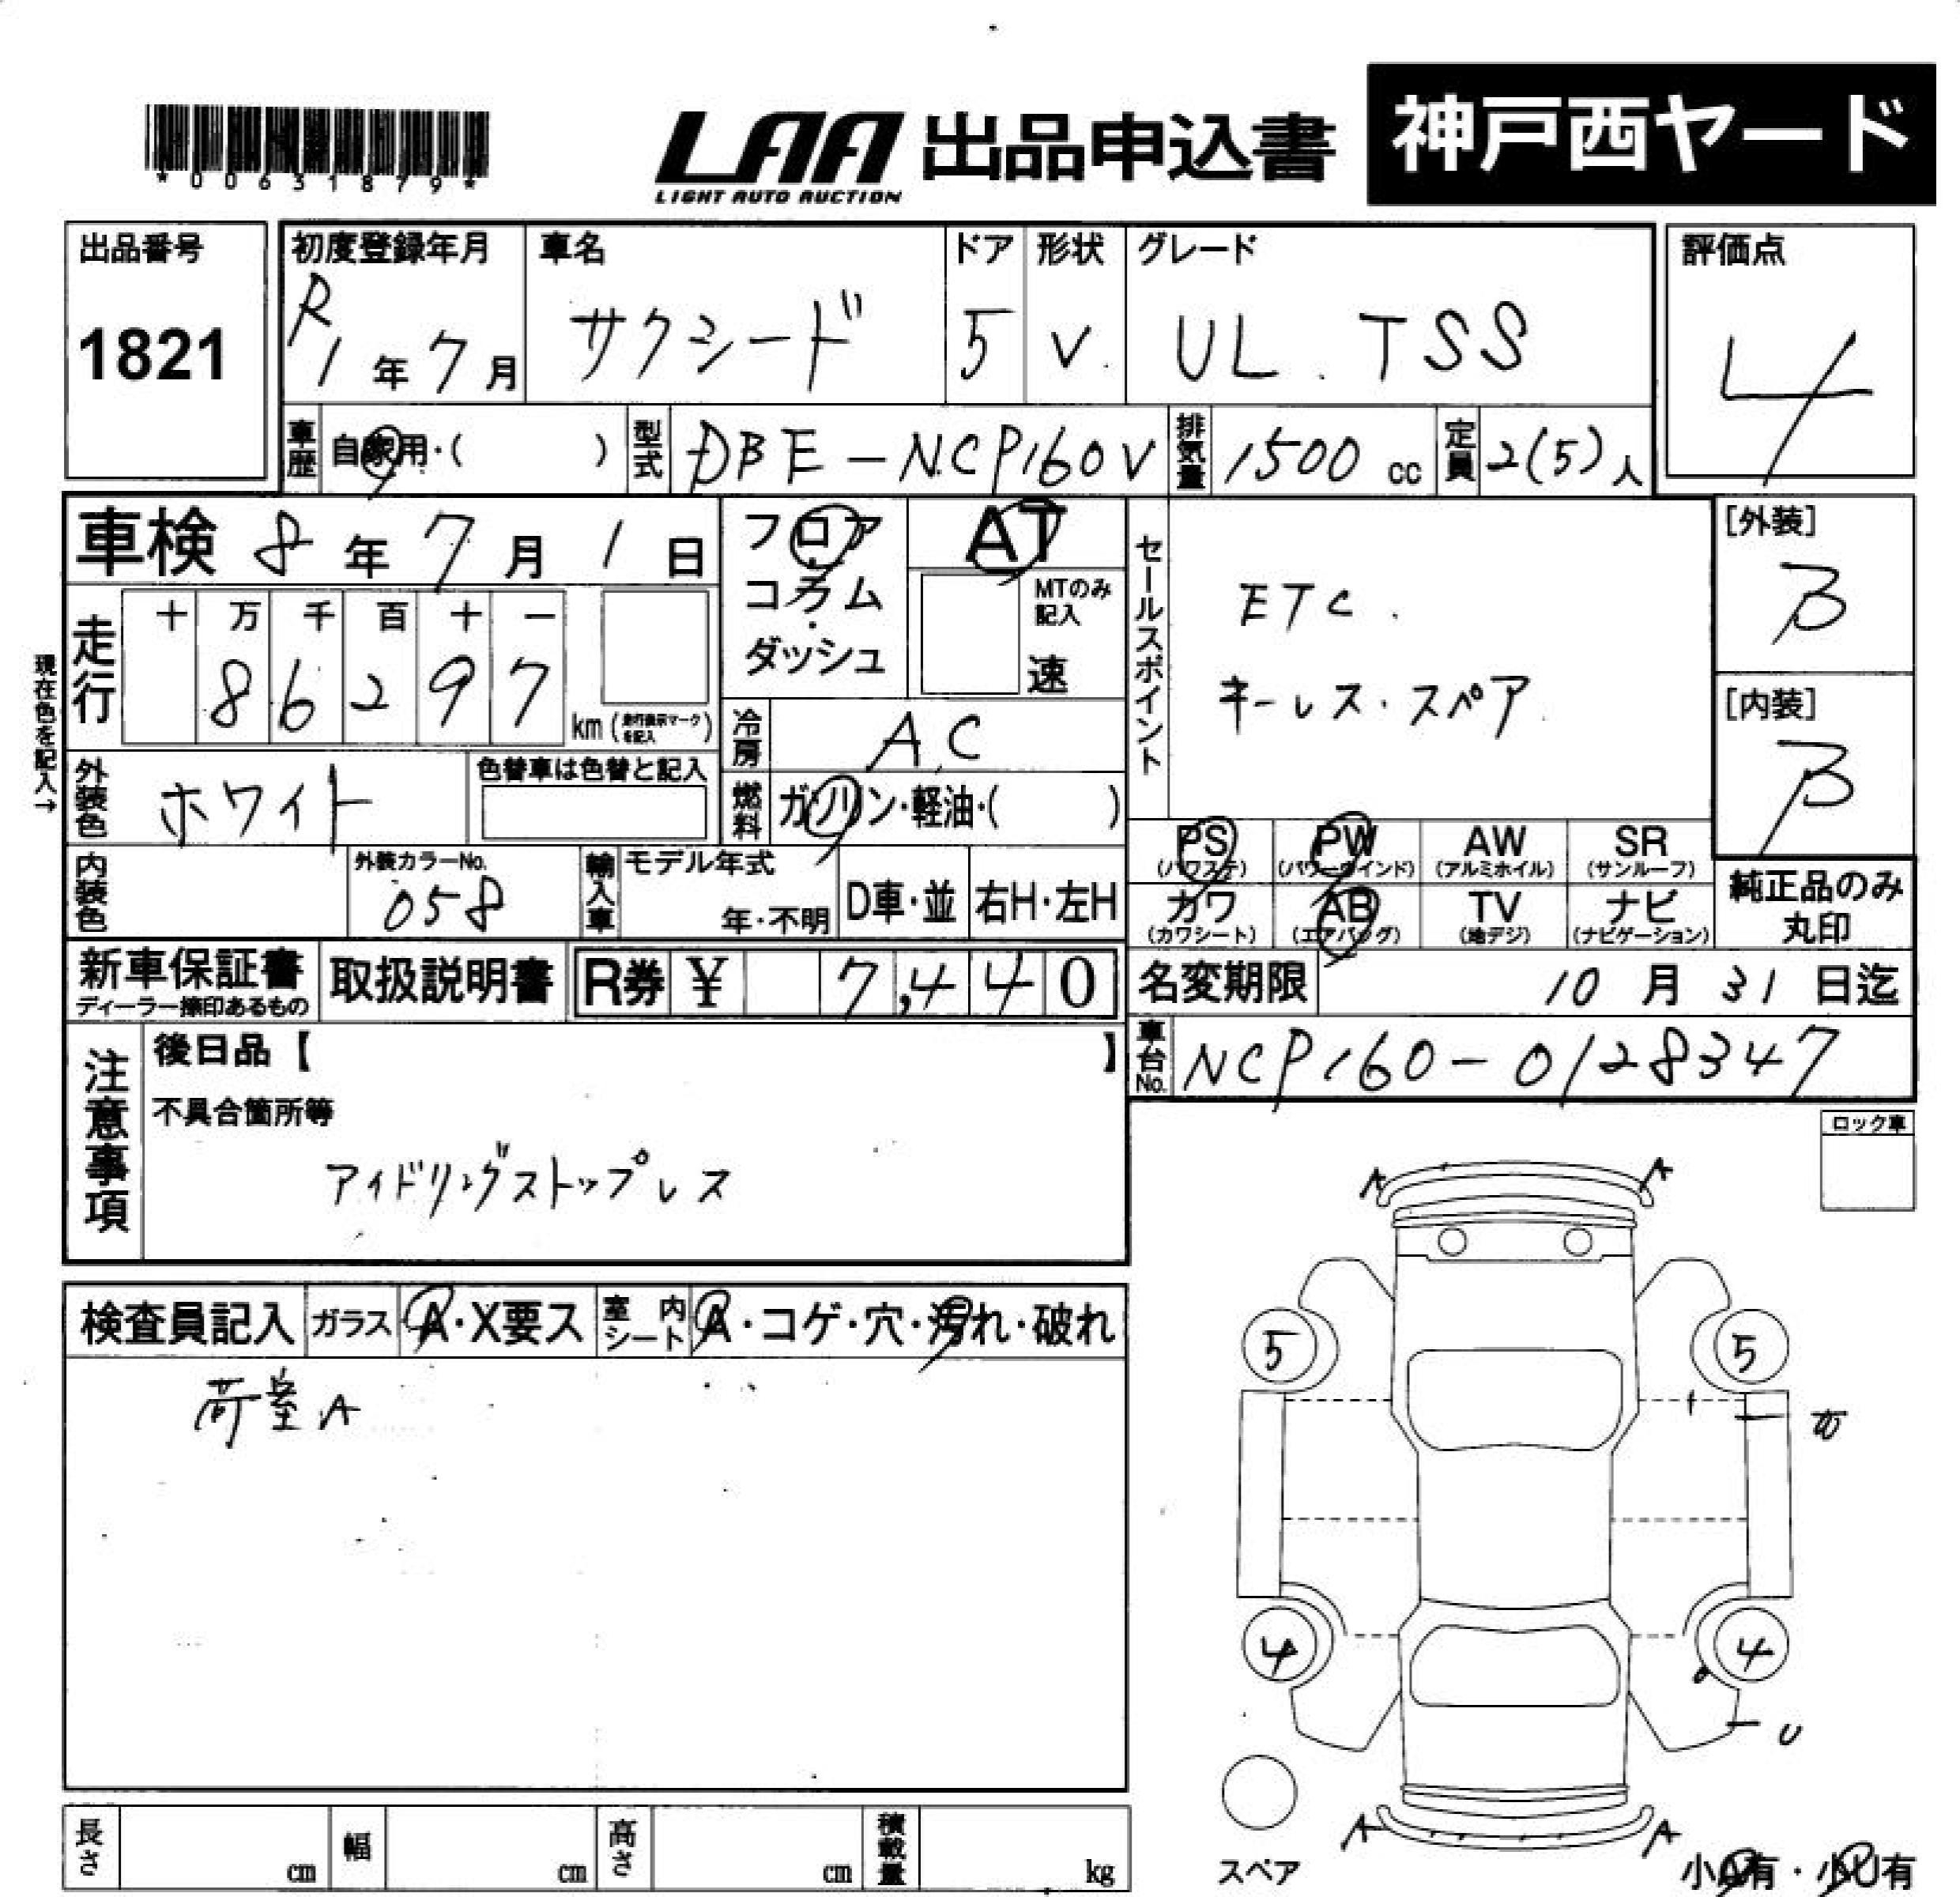 *00631879*
LAA 出品申込書 神戸西ヤード
LIGHT AUTO AUCTION
出品番号 1821
初度登録年月 R1年7月
車名 サクシード
ドア 5
形状 V
グレード UL.TSS
評価点 4
車歴 自家用・( )
型式 DBE-NCP160V
排気量 1500cc
定員 2(5)人
車検 8年7月1日
フロア・コラム・ダッシュ
AT
MTのみ記入 速
セールスポイント
ETC.
キーレス・スペア
[外装] B
[内装] B
現在色を記入→
走行 十万千百十一
86297 km (走行表示マークを記入)
冷房 A.C
外装色 ホワイト
色替車は色替と記入
燃料 ガソリン・軽油・( )
PS (パワステ) PW (パワーウインド) AW (アルミホイル) SR (サンルーフ)
カワ (カワシート) AB (エアバッグ) TV (地デジ) ナビ (ナビゲーション)
純正品のみ丸印
内装色
外装カラーNo. 058
輸入車 モデル年式 年・不明
D車・並 右H・左H
新車保証書 ディーラー捺印あるもの
取扱説明書
R券 ¥ 7,440
名変期限 10月31日迄
車台No. NCP160-0128347
注意事項
後日品【 】
不具合箇所等
アイドリングストップレス
ロック車
検査員記入 ガラス A・X要ス 室内シート A・コゲ・穴・汚れ・破れ
荷室A
A A
5 5
4 4
U
A A
スペア
小A有・小U有
長さ cm 幅 cm 高さ cm 積載量 kg